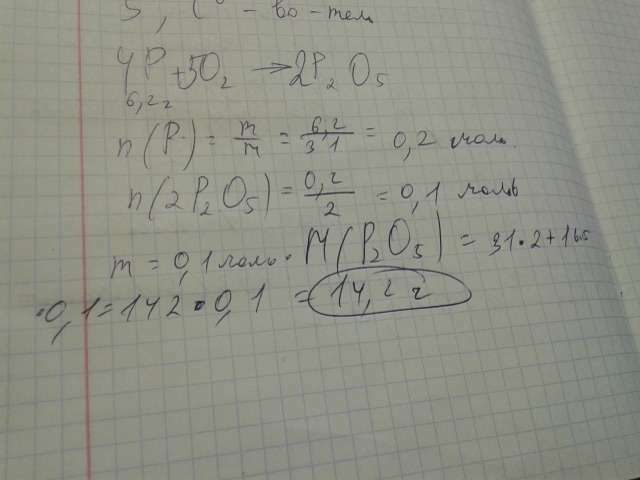 - во - тел
4P + 5O₂ → 2P₂O₅
6,2 г
n(P) = m/M = 6,2/31 = 0,2 моль.
n(2P₂O₅) = 0,2/2 = 0,1 моль
m = 0,1 моль · M(P₂O₅) = 31·2+16·5
·0,1 = 142·0,1 = 14,2 г